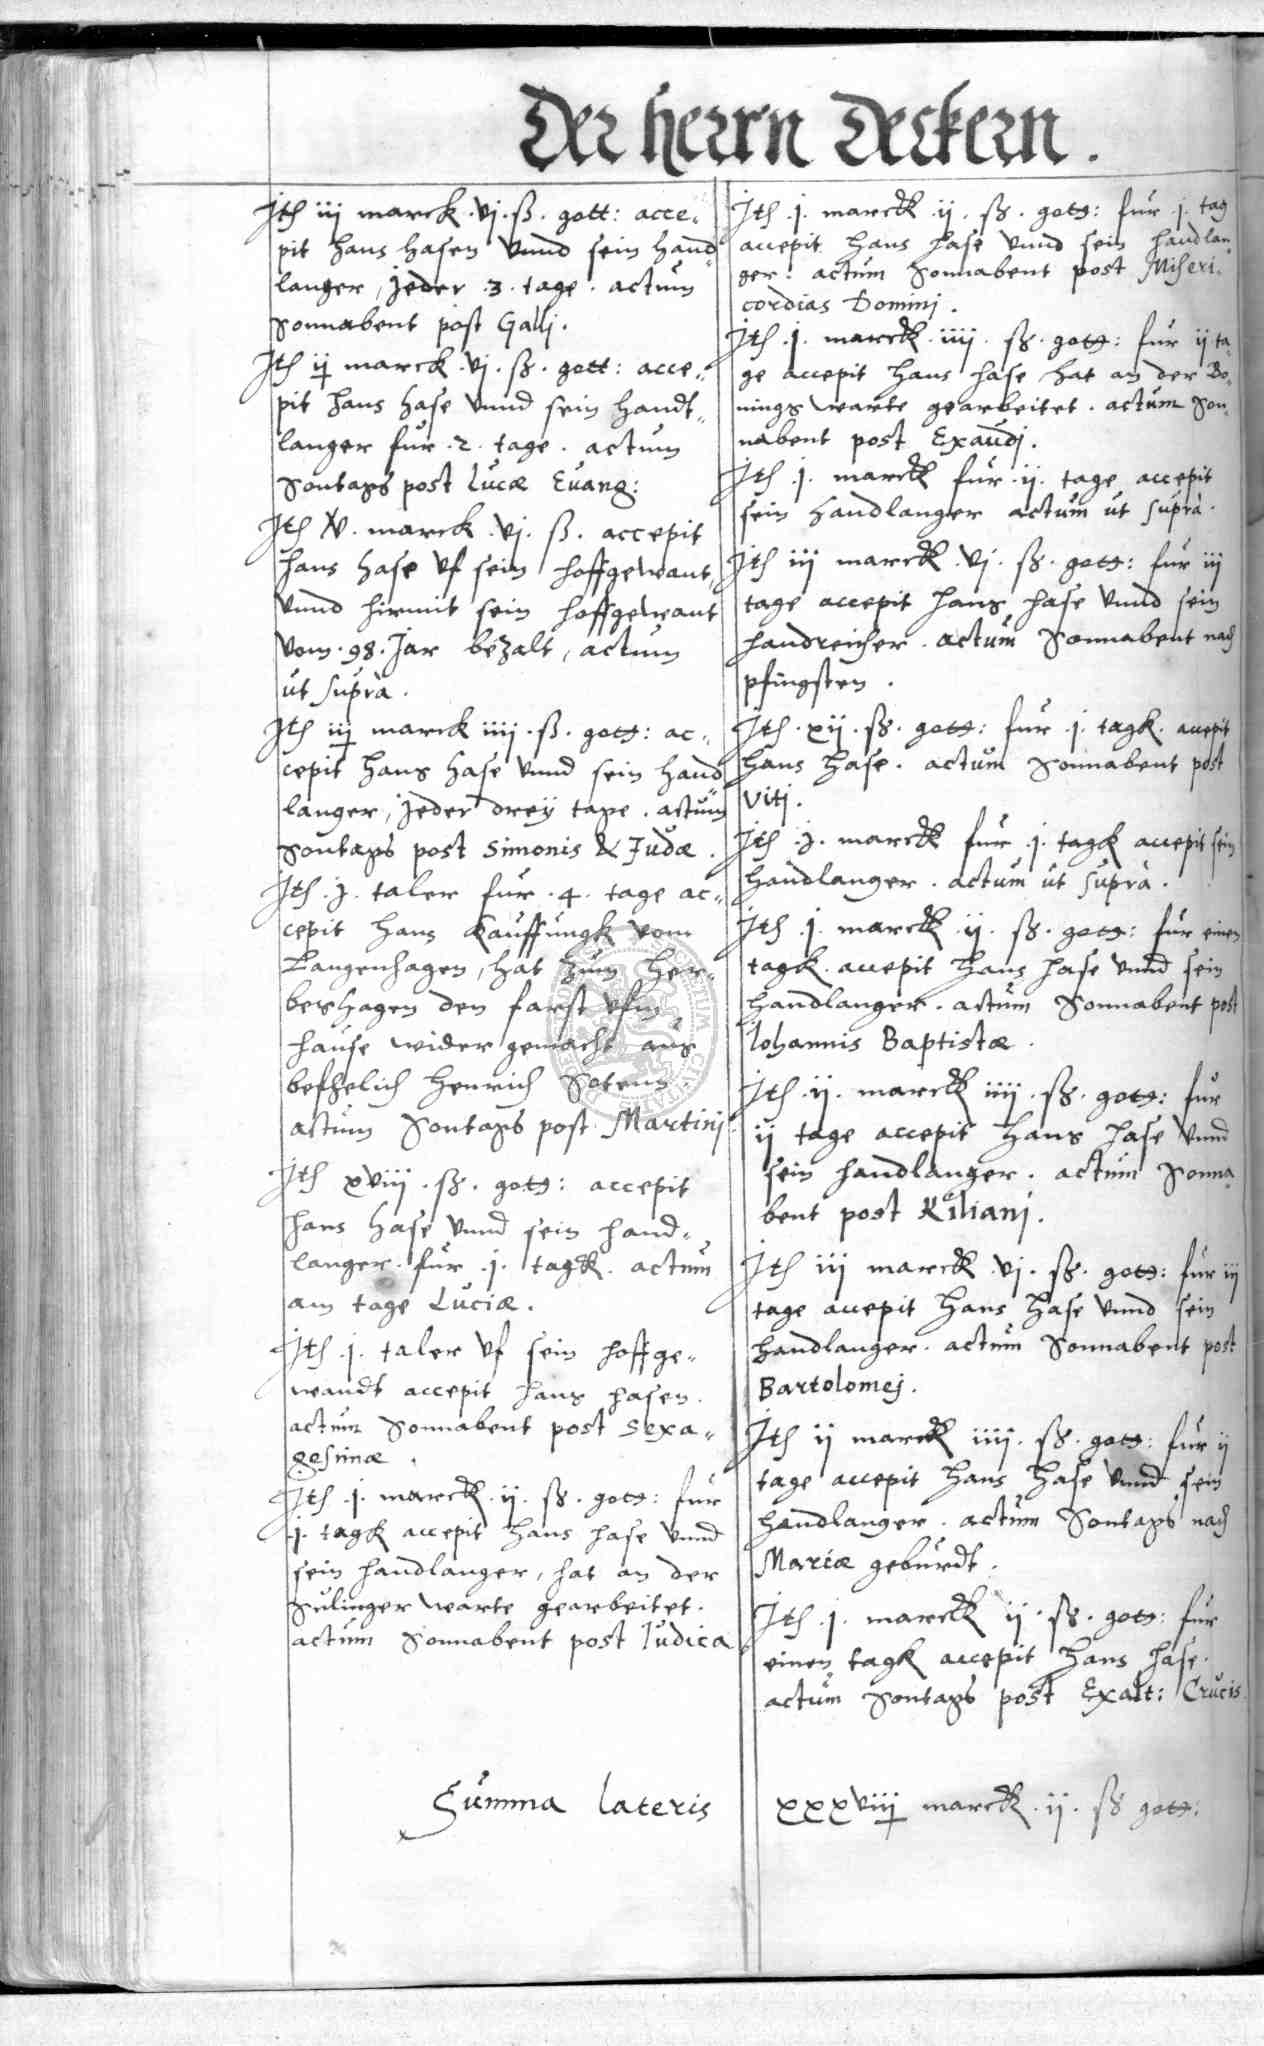 Der herrn Deckern.
Ith iij marck. vj. ß. gott: acce„
pit Hans Hasen vnnd sein Hand„
langer, Jeder .3. tage. actum
Sonnabent post Galli.
Ith ij marck. vj. ß. gott: acce„
pit Hans Hase vnnd sein Handt„
langer fur .2. tage. actum
Sontags post Lucæ Evang:
Ith V. marck. vj. ß. accepit
Hans Hase vf sein hoffgewant,
vnnd hirmit sein hoffgewant
vom .98. Jar bezalt, actum
ut suprà.
Ith iij marck iiij. ß. gott: ac„
cepit Hans Hase vnnd sein Hand„
langer, Jeder dreÿ tage. actum
Sontags post Simonis & Judæ.
Ith .j. taler fur .4. tage ac„
cepit Hans Kauffungk vom
Langenhagen, hat zum Her„
bershagen den farst vfm
Hause wider gemacht aus
befhelich Henrich
actum Sontags post Martinj
Ith xviij. ß. gott: accepit
Hans Hase vnnd sein hand„
langer. fur .j. tagk. actum
am tage Luciæ.
Ith .j. taler vf sein hoffge„
wandt accepit Hans Hasen.
actum Sonnabent post Sexa„
gesimæ.
Ith .j. marck. ij. ß. gott: fur
.j. tagk accepit Hans Hase vnnd
sein handlanger, hat an der
Sulinger warte gearbeitet.
actum Sonnabent post Judica
Ith .j. marck .ij. ß. gott: fur .j. tag
accepit Hans Hase vnnd sein handlan„
ger. actum Sonnabent post Miseri„
cordias Dominj.
Ith .j. marck .iiij. ß. gott: fur ij ta„
ge accepit Hans Hase hat an der Bo„
nings warte gearbeitet. actum Son„
nabent post Exaudj.
Ith .j. marck fur .ij. tage accepit
sein Handlanger actum ut suprà.
Ith iij marck .vj. ß. gott: fur iij
tage accepit Hans Hase vnnd sein
handreicher. actum Sonnabent nach
pfingsten.
Ith .xij. ß. gott: fur .j. tagk. accepit
Hans Hase. actum Sonnabent post
Vitj.
Ith .j. marck fur .j. tagk accepit sein
handlanger. actum ut suprà.
Ith .j. marck .ij. ß. gott: fur einen
tagk. accepit Hans Hase vnnd sein
handlanger. actum Sonnabent post
Johannis Baptistæ.
Ith .ij. marck iiij. ß. gott: fur
ij tage accepit Hans Hase vnnd
sein handlanger. actum Sonna„
bent post Kilianj.
Ith iij marck .vj. ß. gott: fur iij
tage accepit Hans Hase vnnd sein
handlanger. actum Sonnabent post
Bartolomej.
Ith ij marck iiij. ß. gott: fur ij
tage accepit Hans Hase vnnd sein
handlanger. actum Sontags nach
Mariæ geburdt.
Ith .j. marck ij. ß. gott: fur
einen tagk accepit Hans Hase.
actum Sontags post Exalt: Crucis.
Summa lateris xxxviij marck .ij. ß gott: